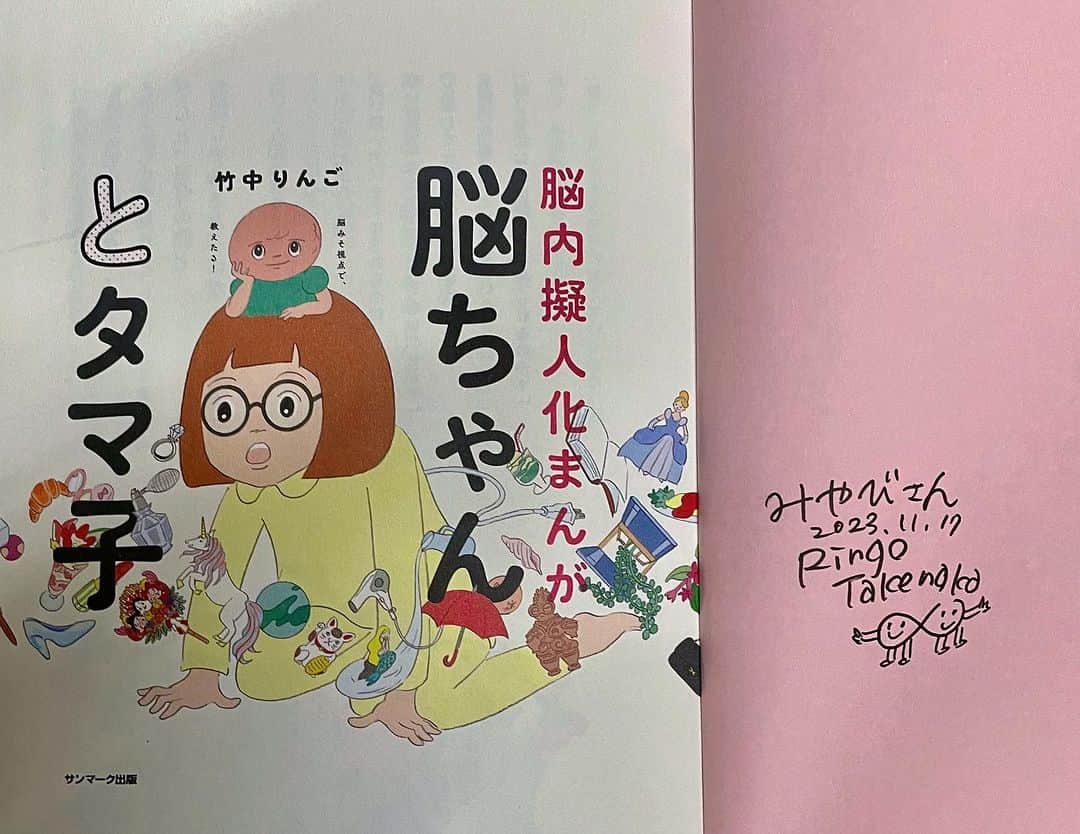 脳内擬人化まんが
脳ちゃん
とタマ子
竹中りんご
脳みそ視点で、
教えたさ！
サンマーク出版
みやびさん
2023.11.17
Ringo
Takenaka